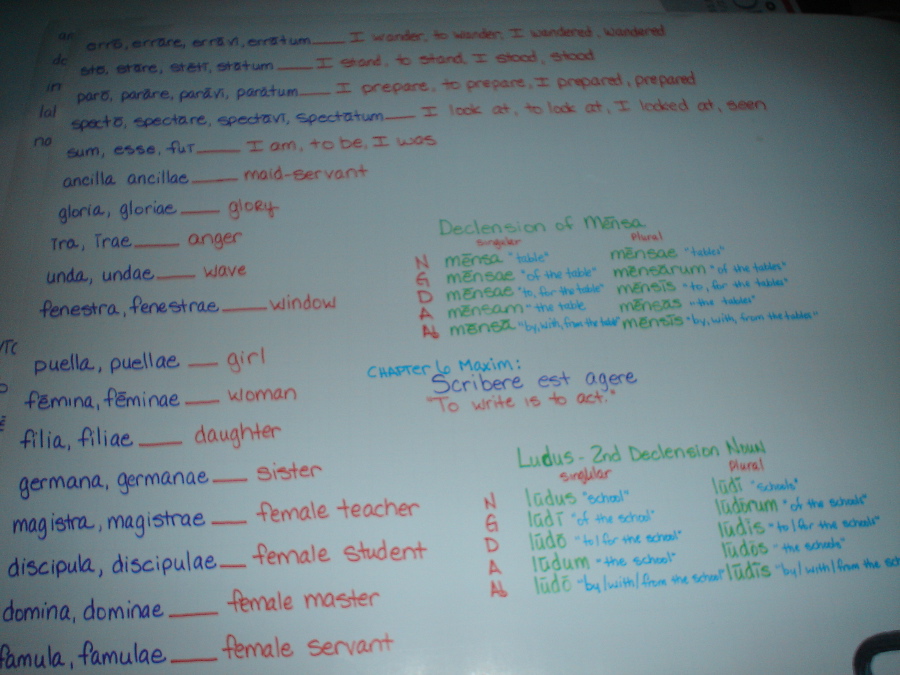 ar
errō, errāre, errāvī, errātum ____ I wander, to wander, I wandered, wandered
do
stō, stāre, stetī, stātum ____ I stand, to stand, I stood, stood
in
parō, parāre, parāvī, parātum ____ I prepare, to prepare, I prepared, prepared
lal
spectō, spectāre, spectāvī, spectātum ____ I look at, to look at, I looked at, seen
no
sum, esse, fuī ____ I am, to be, I was
ancilla ancillae ____ maid-servant
gloria, gloriae ____ glory
īra, īrae ____ anger
unda, undae ____ wave
fenestra, fenestrae ____ window
puella, puellae ____ girl
fēmina, fēminae ____ woman
filia, filiae ____ daughter
germana, germanae ____ sister
magistra, magistrae ____ female teacher
discipula, discipulae ____ female student
domina, dominae ____ female master
famula, famulae ____ female servant
Declension of Mēnsa
singular Plural
N mēnsa "table" mēnsae "tables"
G mēnsae "of the table" mēnsārum "of the tables"
D mēnsae "to, for the table" mēnsīs "to, for the tables"
A mēnsam "the table mēnsās "the tables"
Ab mēnsā "by, with, from the table" mēnsīs "by, with, from the tables"
CHAPTER 6 Maxim:
Scribere est agere
"To write is to act."
Ludus - 2nd Declension Noun
singular Plural
N lūdus "school" lūdī "schools"
G lūdī "of the school" lūdōrum "of the schools"
D lūdō "to/for the school" lūdīs "to/for the schools"
A lūdum "the school" lūdōs "the schools"
Ab lūdō "by/with/from the school" lūdīs "by/with/from the sc